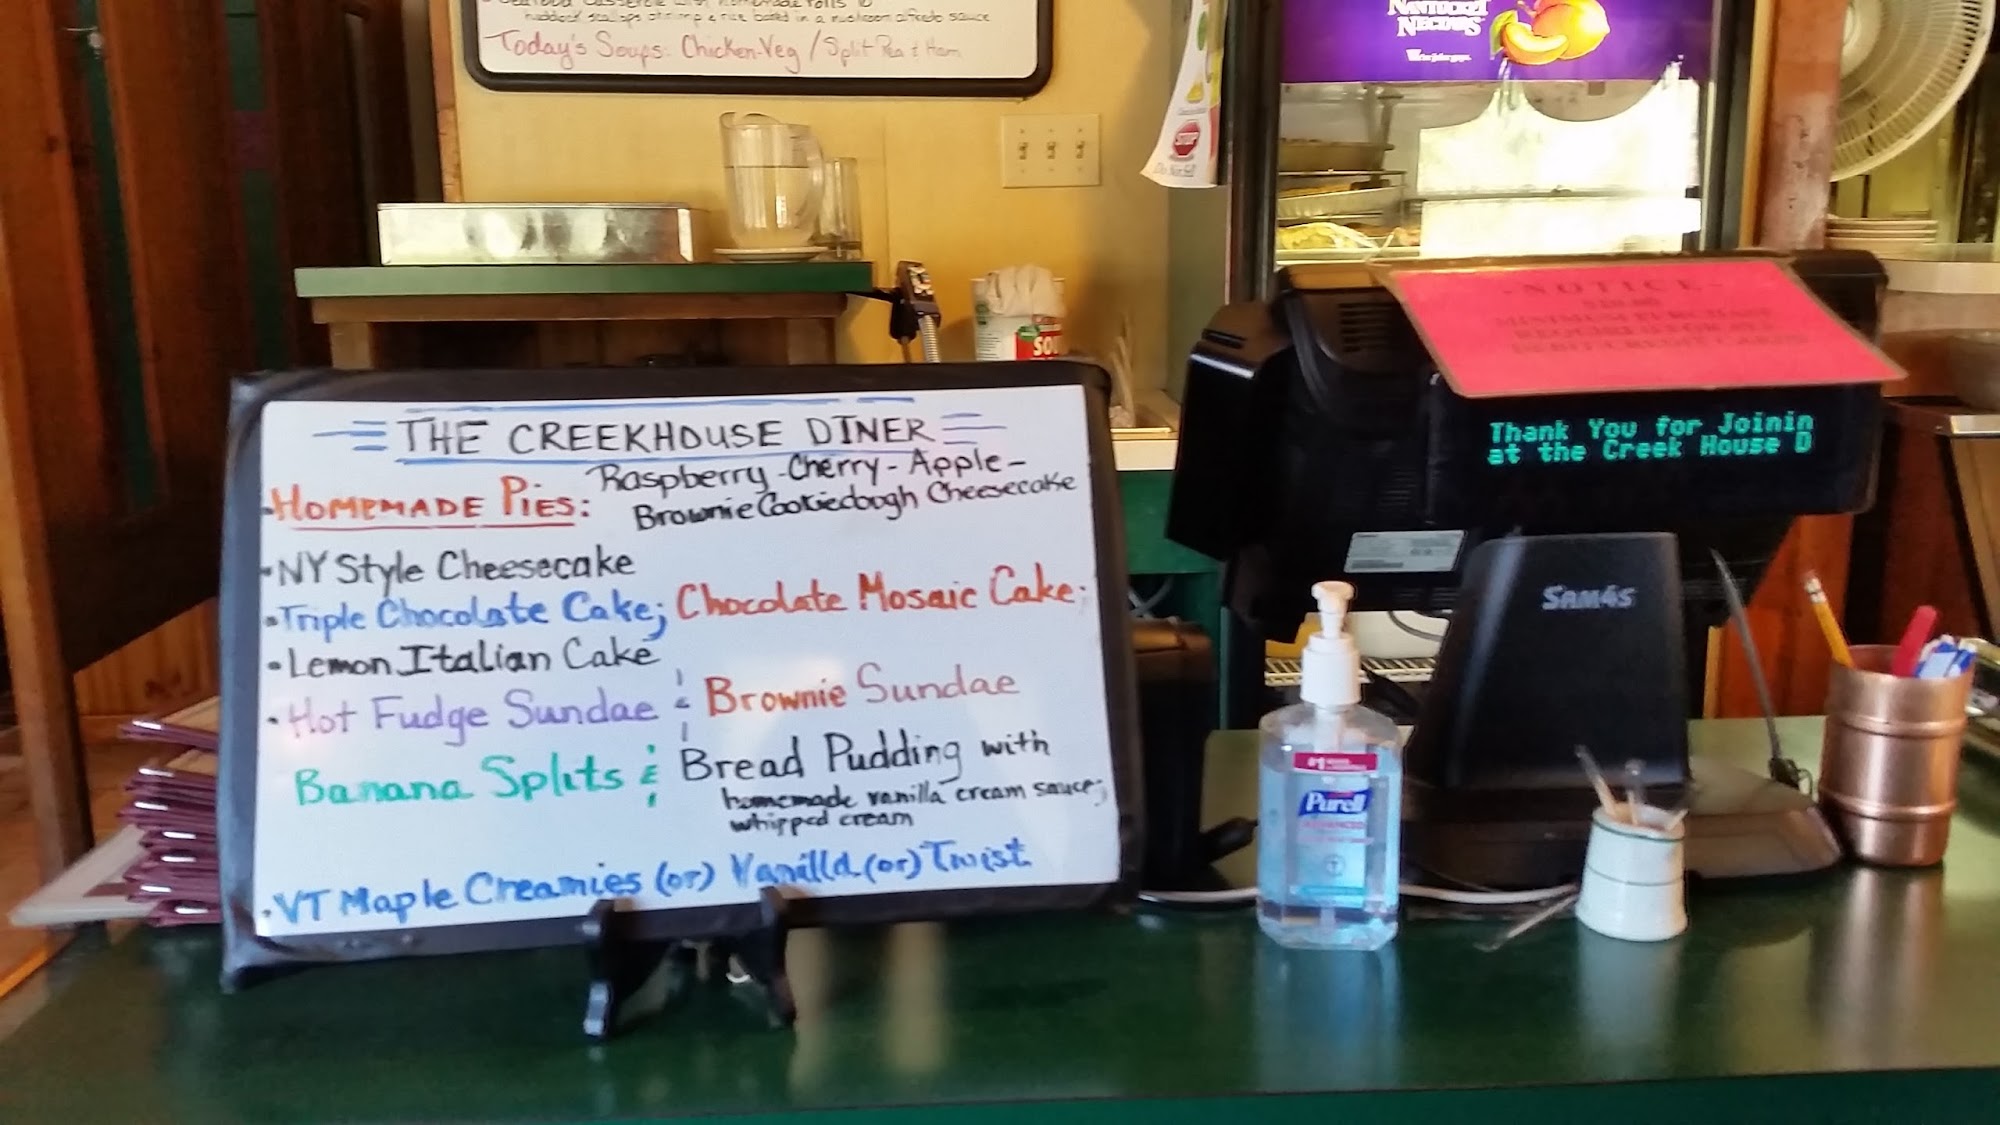 Seafood Casserole with homemade rolls
haddock scallops shrimp & rice baked in a mushroom alfredo sauce
Today's Soups: Chicken-Veg / Split Pea & Ham
NANTUCKET
NECTARS
STOP
SOU
- NOTICE -
MINIMUM PURCHASE
Thank You for Joinin
at the Creek House D
SAM4s
THE CREEKHOUSE DINER
• HOMEMADE PIES: Raspberry - Cherry - Apple -
Brownie Cookiedough Cheesecake
• NY Style Cheesecake
• Triple Chocolate Cake; Chocolate Mosaic Cake;
• Lemon Italian Cake
• Hot Fudge Sundae & Brownie Sundae
Banana Splits & Bread Pudding with
homemade vanilla cream sauce;
whipped cream
• VT Maple Creamies (or) Vanilla (or) Twist
#1
Purell
ADVANCED